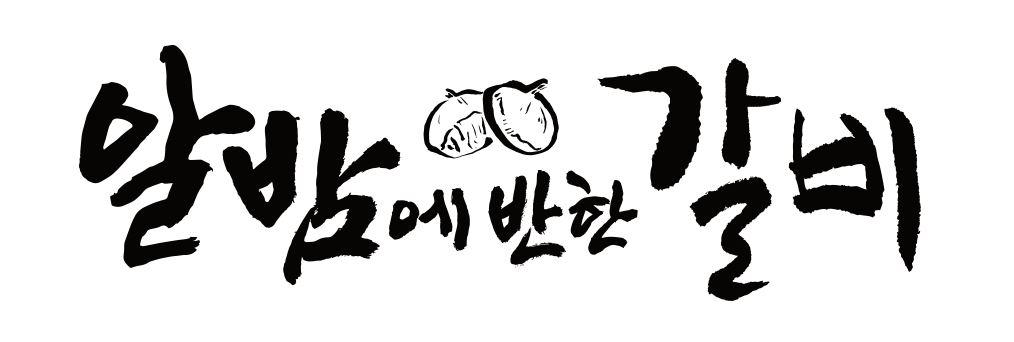 알밤에 반한 갈비